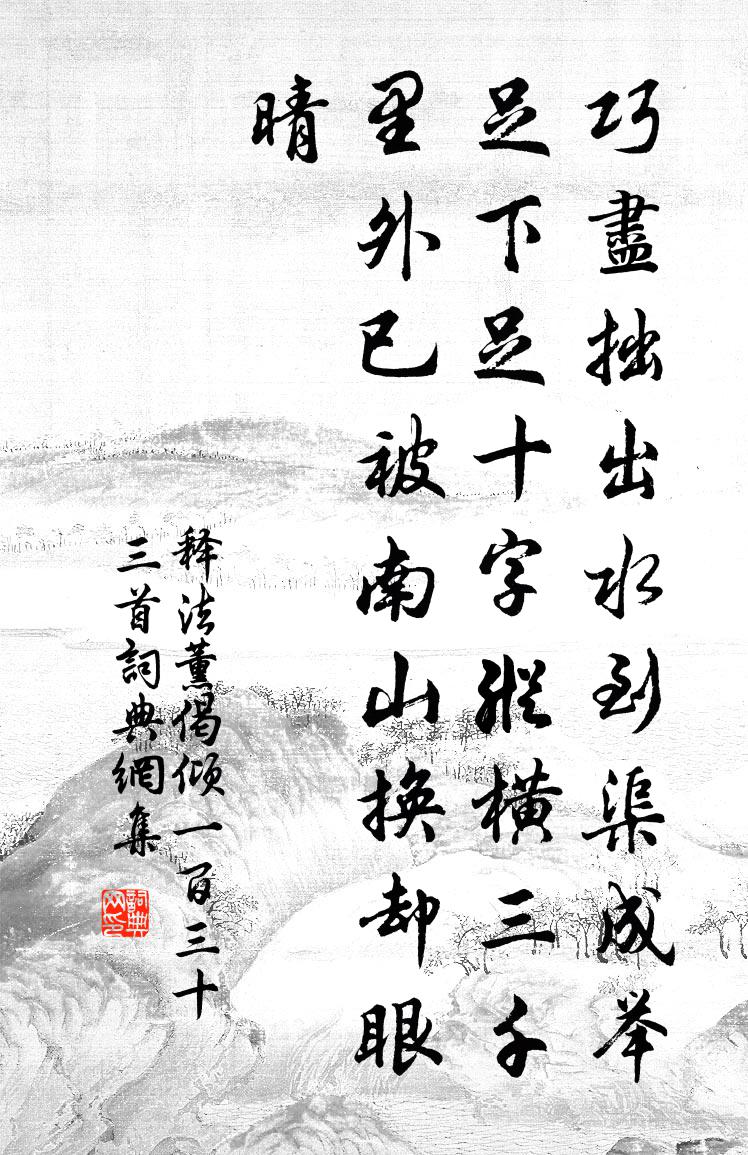 巧盡拙出水到渠成举
足下足十字縱橫三千
里外已被南山換却眼
晴
释法薰偈倾一百三十
三首詞典網集
詞典
网印